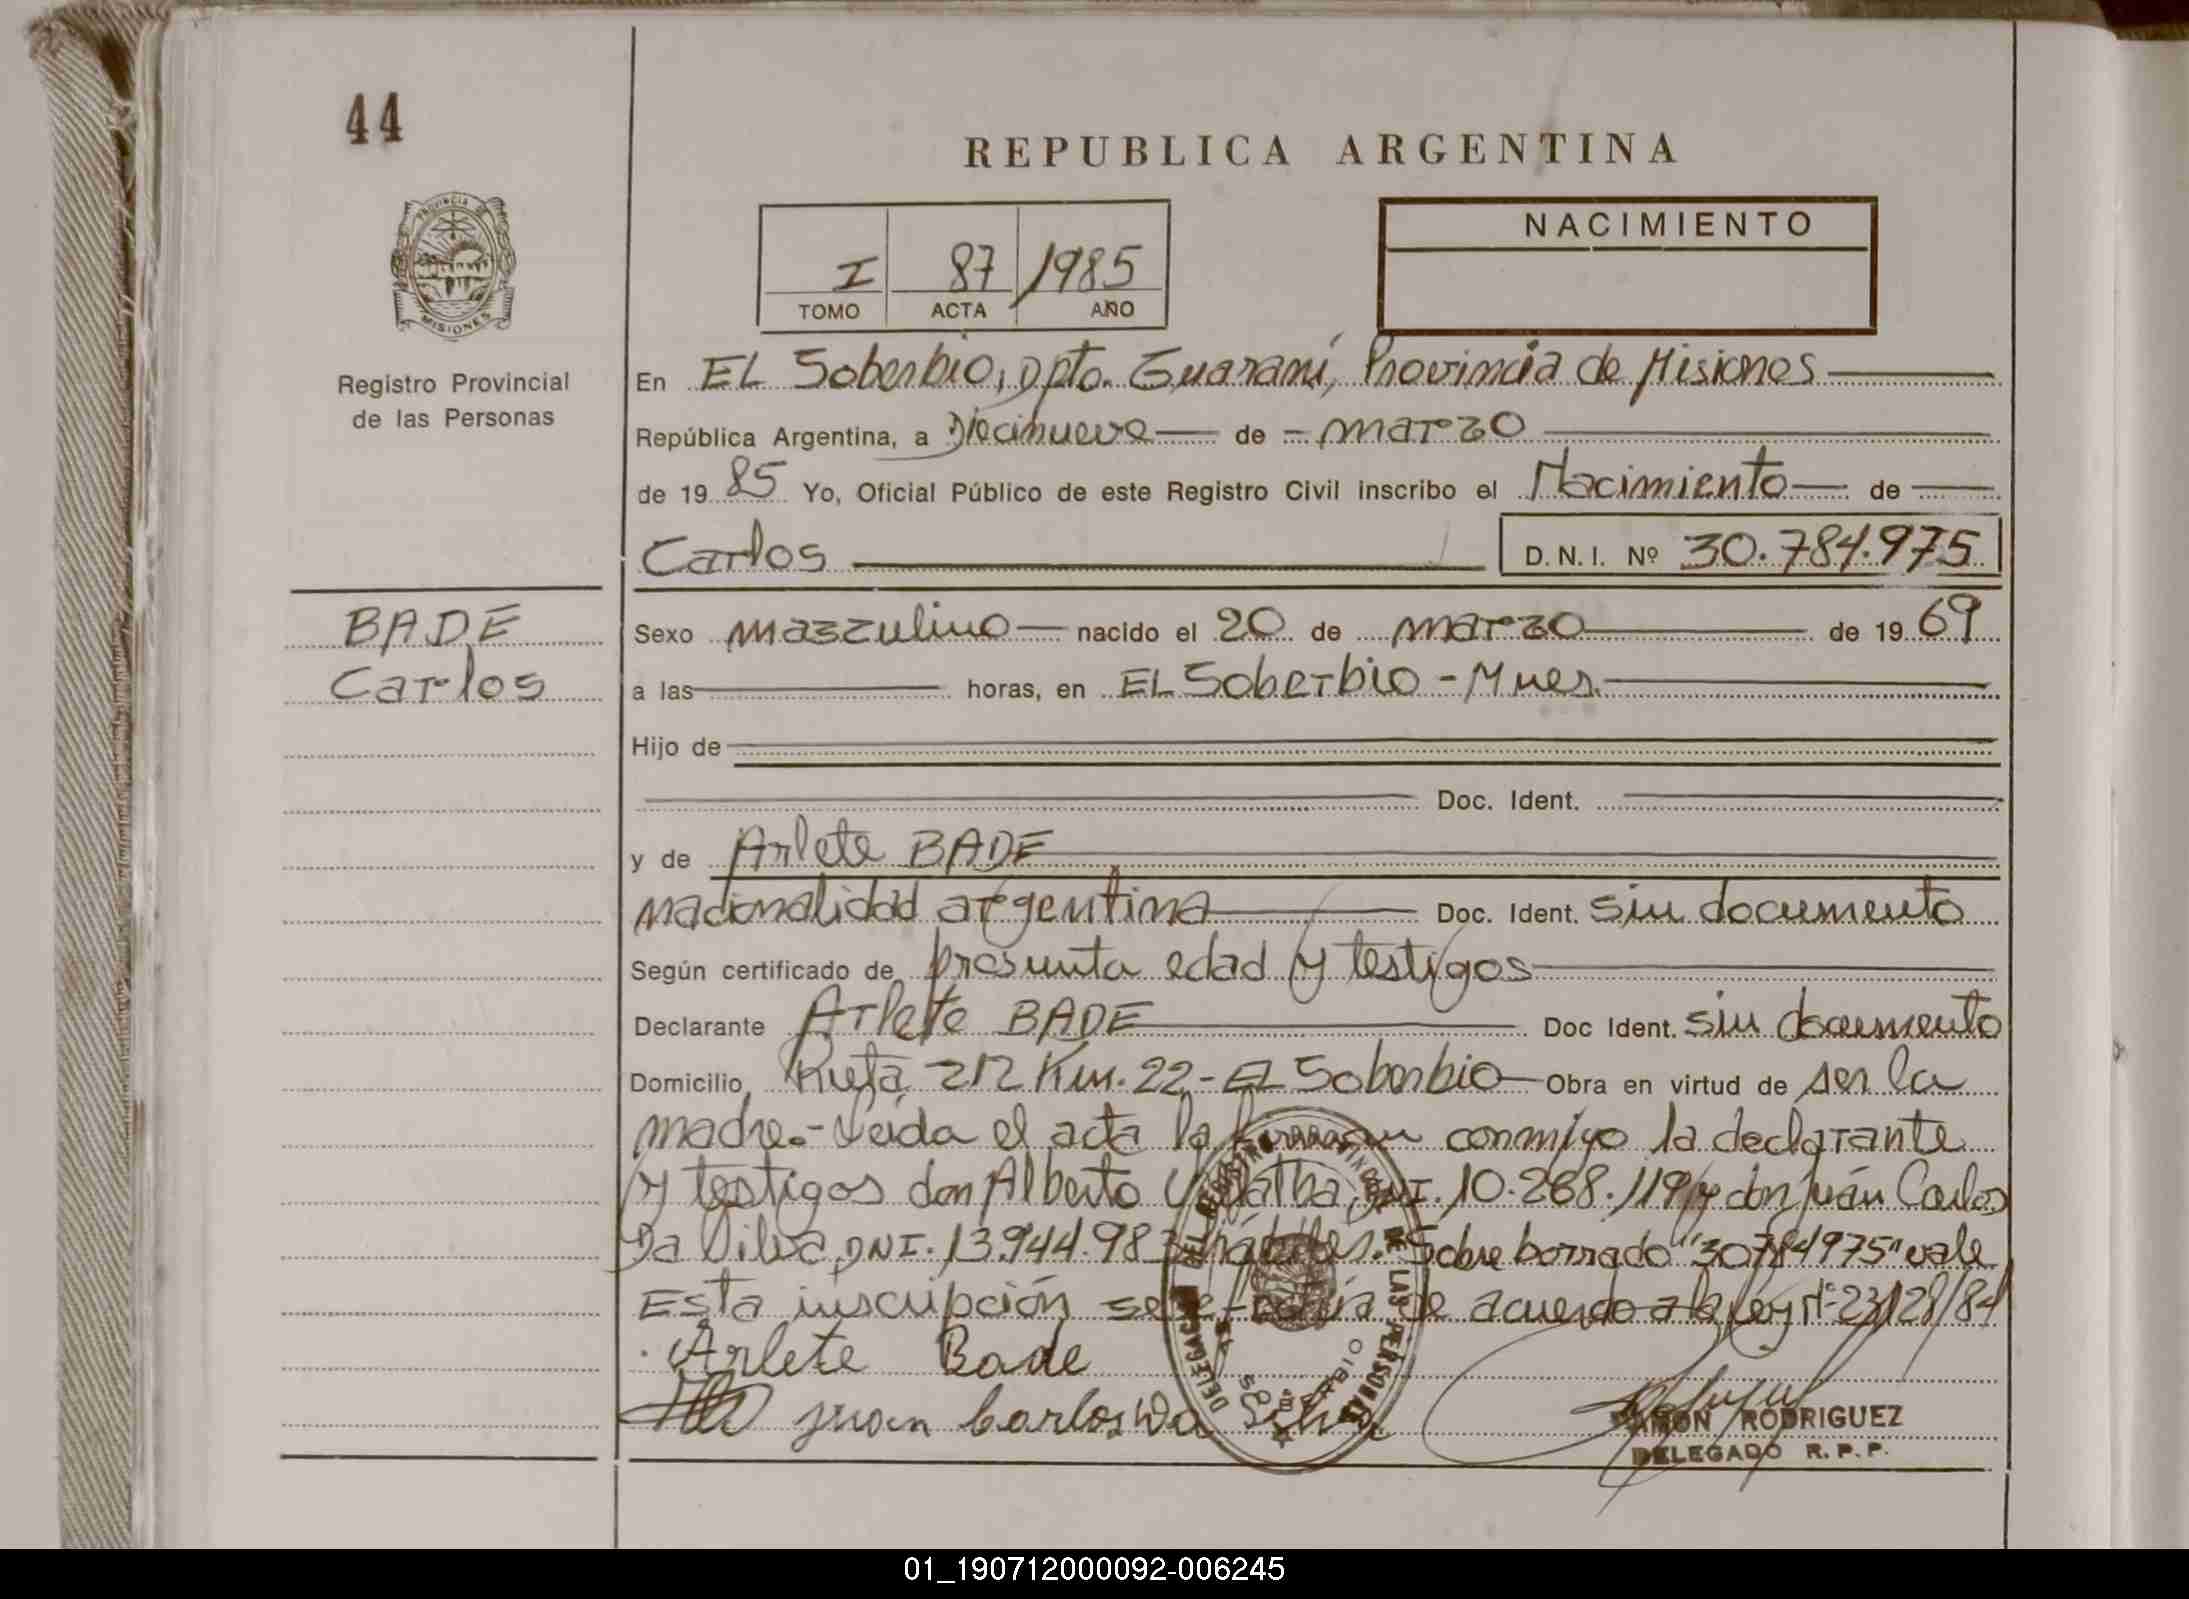 44
REPUBLICA ARGENTINA
PROVINCIA DE
MISIONES
Registro Provincial
de las Personas
I 87 1985
TOMO ACTA AÑO
NACIMIENTO
En EL Soberbio, Dpto. Guaraní, Provincia de Misiones
República Argentina, a Diecinueve de marzo
de 19 85 Yo, Oficial Público de este Registro Civil inscribo el Nacimiento de
Carlos D.N.I. Nº 30.784.975
BADE
Carlos
Sexo masculino nacido el 20 de marzo de 19 69
a las horas, en EL Soberbio - Mnes.
Hijo de
Doc. Ident.
y de Arlete BADE
nacionalidad argentina Doc. Ident. sin documento
Según certificado de presunta edad y testigos
Declarante Arlete BADE Doc Ident. sin documento
Domicilio Ruta 212 Km. 22 - EL Soberbio Obra en virtud de ser la
madre.- Leida el acta la conmigo la declarante
y testigos don Alberto DNI. 10.268.119 y don Juán Carlos
Da Silva DNI. 13.944.983 hábiles. Sobre borrado "30784975" vale
Esta inscripción se efectúa de acuerdo a la Ley Nº 23128/84
Arlete Bade
Juan Carlos Da Silva
DELEGACION DEL REGISTRO PROVINCIAL DE LAS PERSONAS
SOBERBIO
RAMON RODRIGUEZ
DELEGADO R.P.P.
01_190712000092-006245